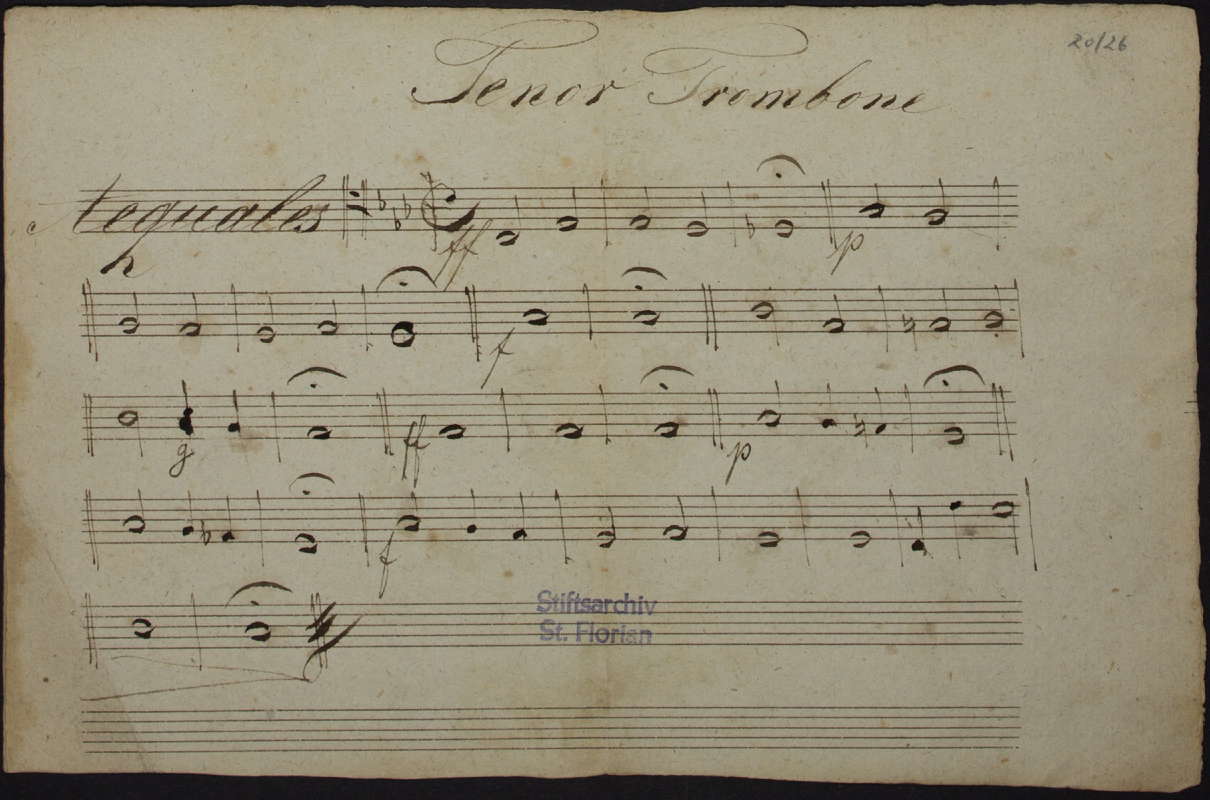 20/26
Tenor Trombone
Aequales
ff p
f
g ff p
f
Stiftsarchiv
St. Florian